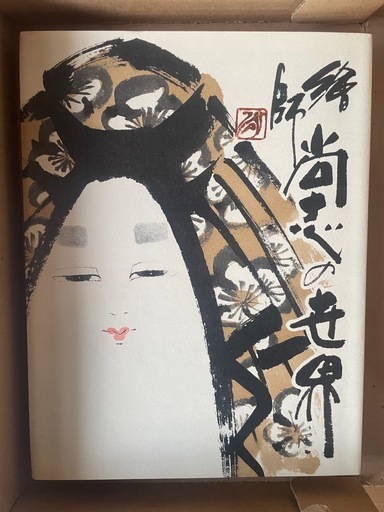 繪師
尚志の世界